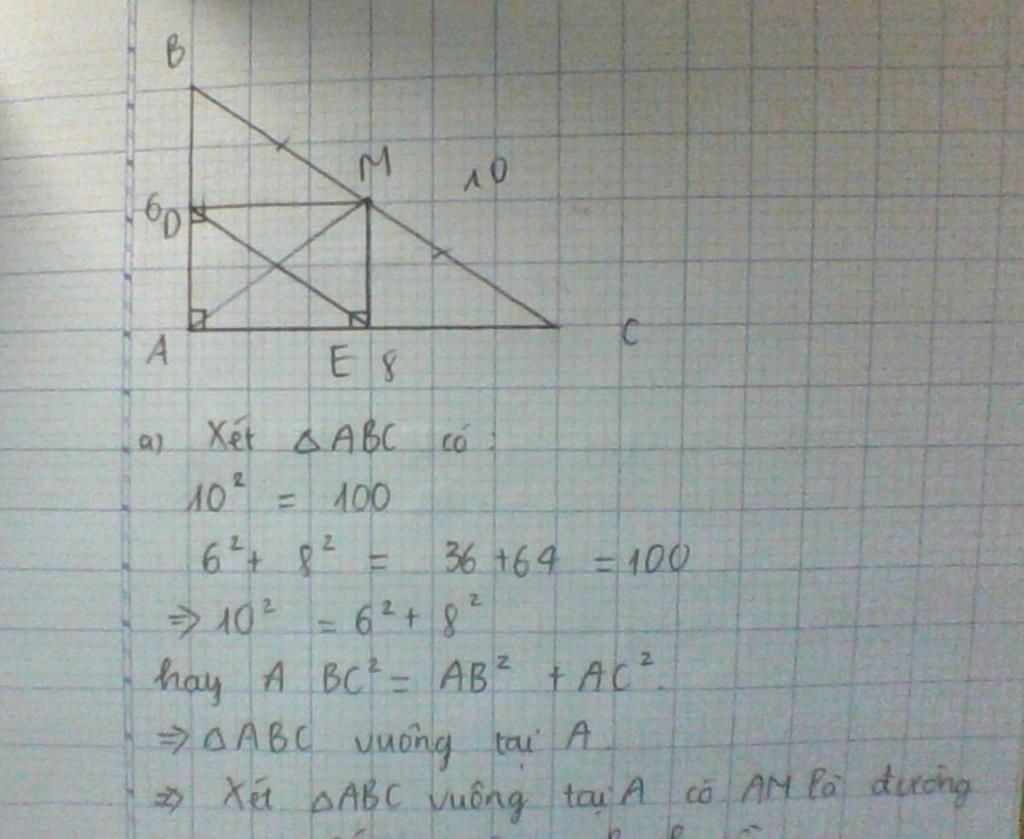 B
M
10
6
D
A
E 8
C
a) Xét △ABC có:
10² = 100
6² + 8² = 36 + 64 = 100
⇒ 10² = 6² + 8²
hay A BC² = AB² + AC².
⇒ △ABC vuông tại A
⇒ Xét △ABC vuông tại A có AM là đường